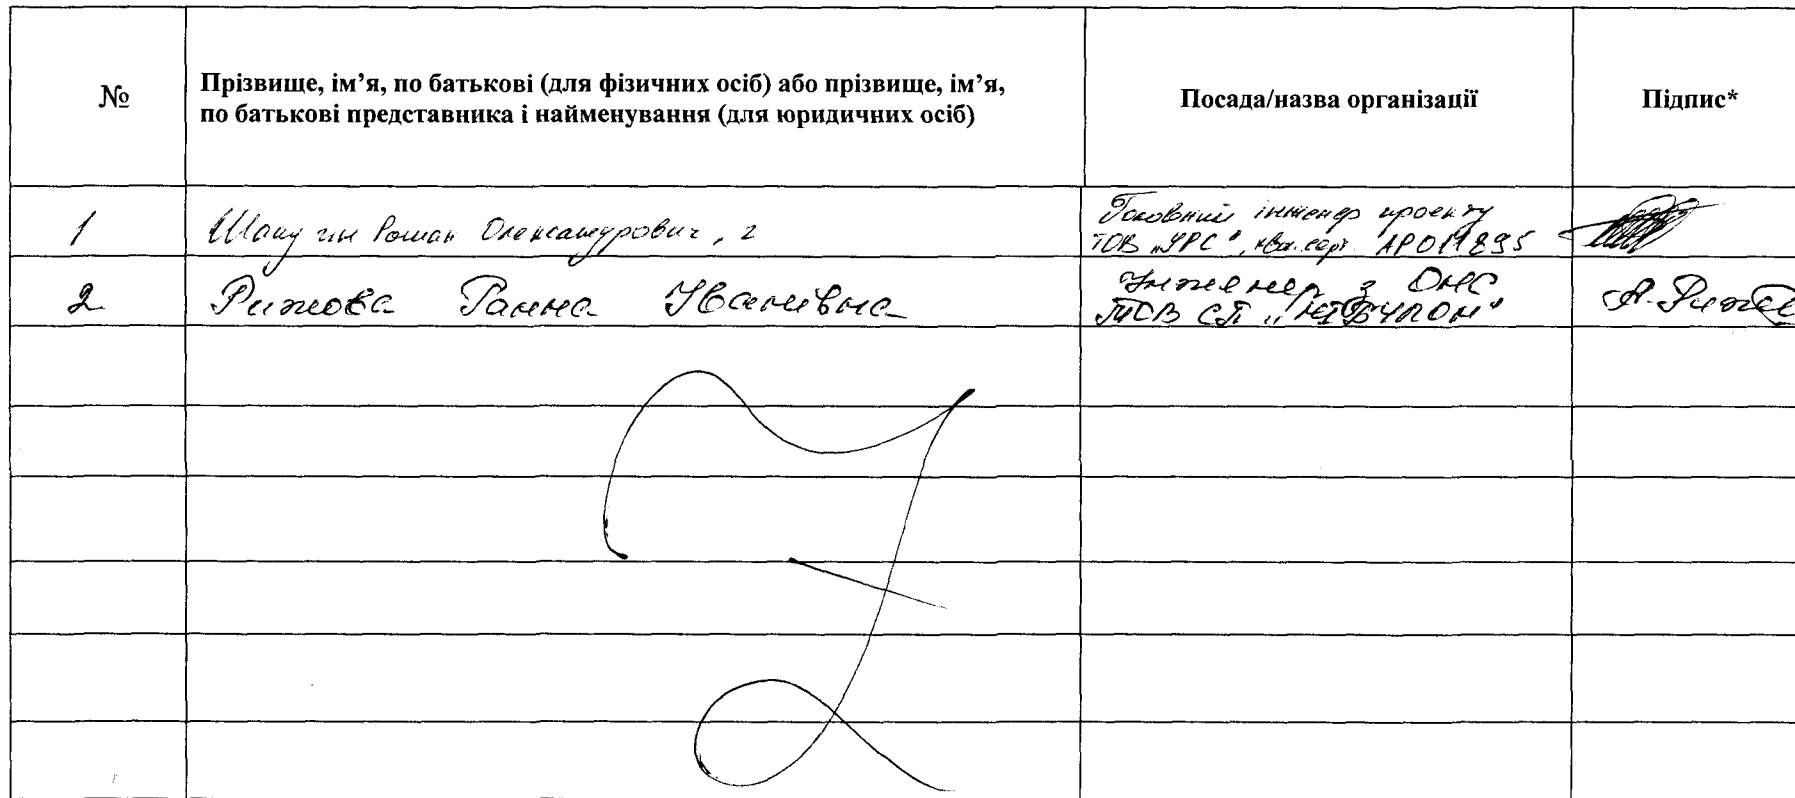 №
Прізвище, ім’я, по батькові (для фізичних осіб) або прізвище, ім’я,
по батькові представника і найменування (для юридичних осіб)
Посада/назва організації
Підпис*
1
Роман Олександрович, г
Головний інженер проекту
ТОВ „УРС", кв. серт. АР 011895
2
Рижова Ганна Іванівна
Інженер з ОНС
ТОВ СП „НІБУЛОН"
А. Рижо